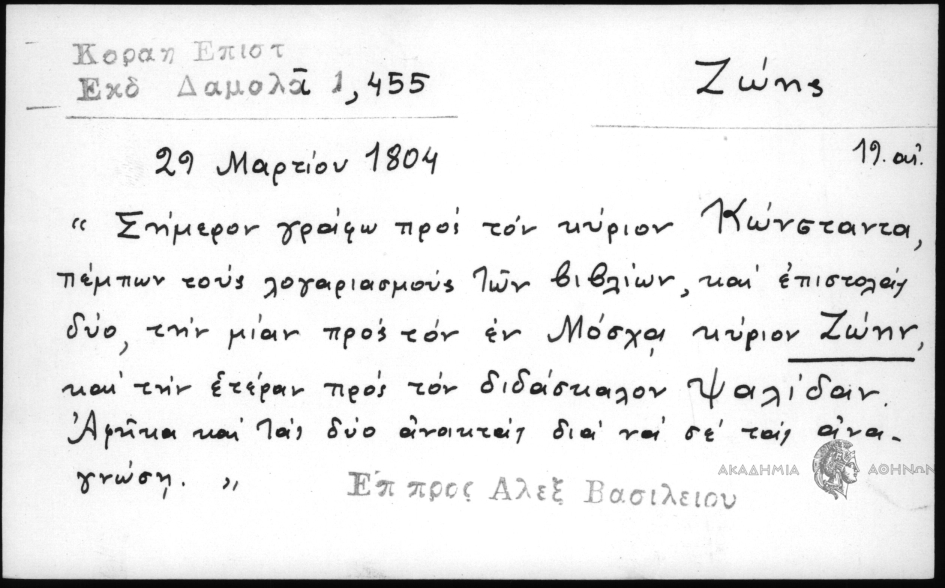 Κοραη Επιστ
Εκδ Δαμολᾶ 1, 455
Ζώης
19. αἰ.
29 Μαρτίου 1804
“ Σήμερον γράφω πρός τόν κύριον Κώνσταντα,
πέμπων τούς λογαριασμούς τῶν βιβλίων, καί ἐπιστολάς
δύο, τήν μίαν πρός τόν ἐν Μόσχᾳ κύριον Ζώην,
καί τήν ἑτέραν πρός τόν διδάσκαλον Ψαλίδαν.
Ἀφῆκα καί τάς δύο ἀνοικτάς διά νά σέ τάς ἀνα-
γνώσῃ. ”
Ἐπ προς Αλεξ Βασιλειου
ΑΚΑΔΗΜΙΑ ΑΘΗΝΩΝ